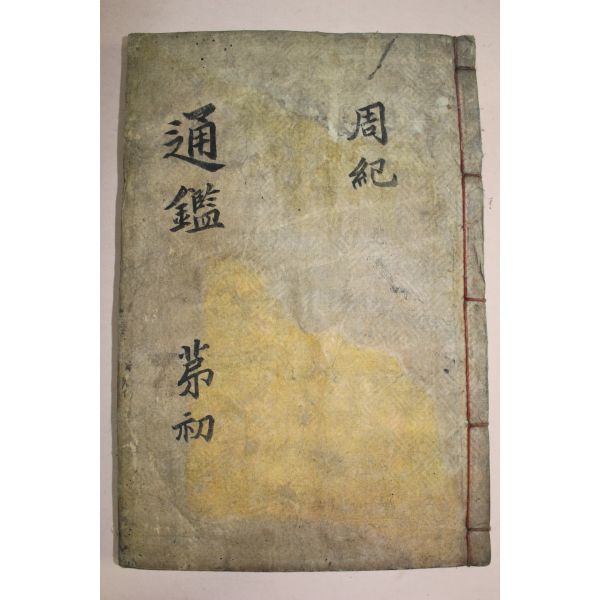 周紀
通鑑
苐初